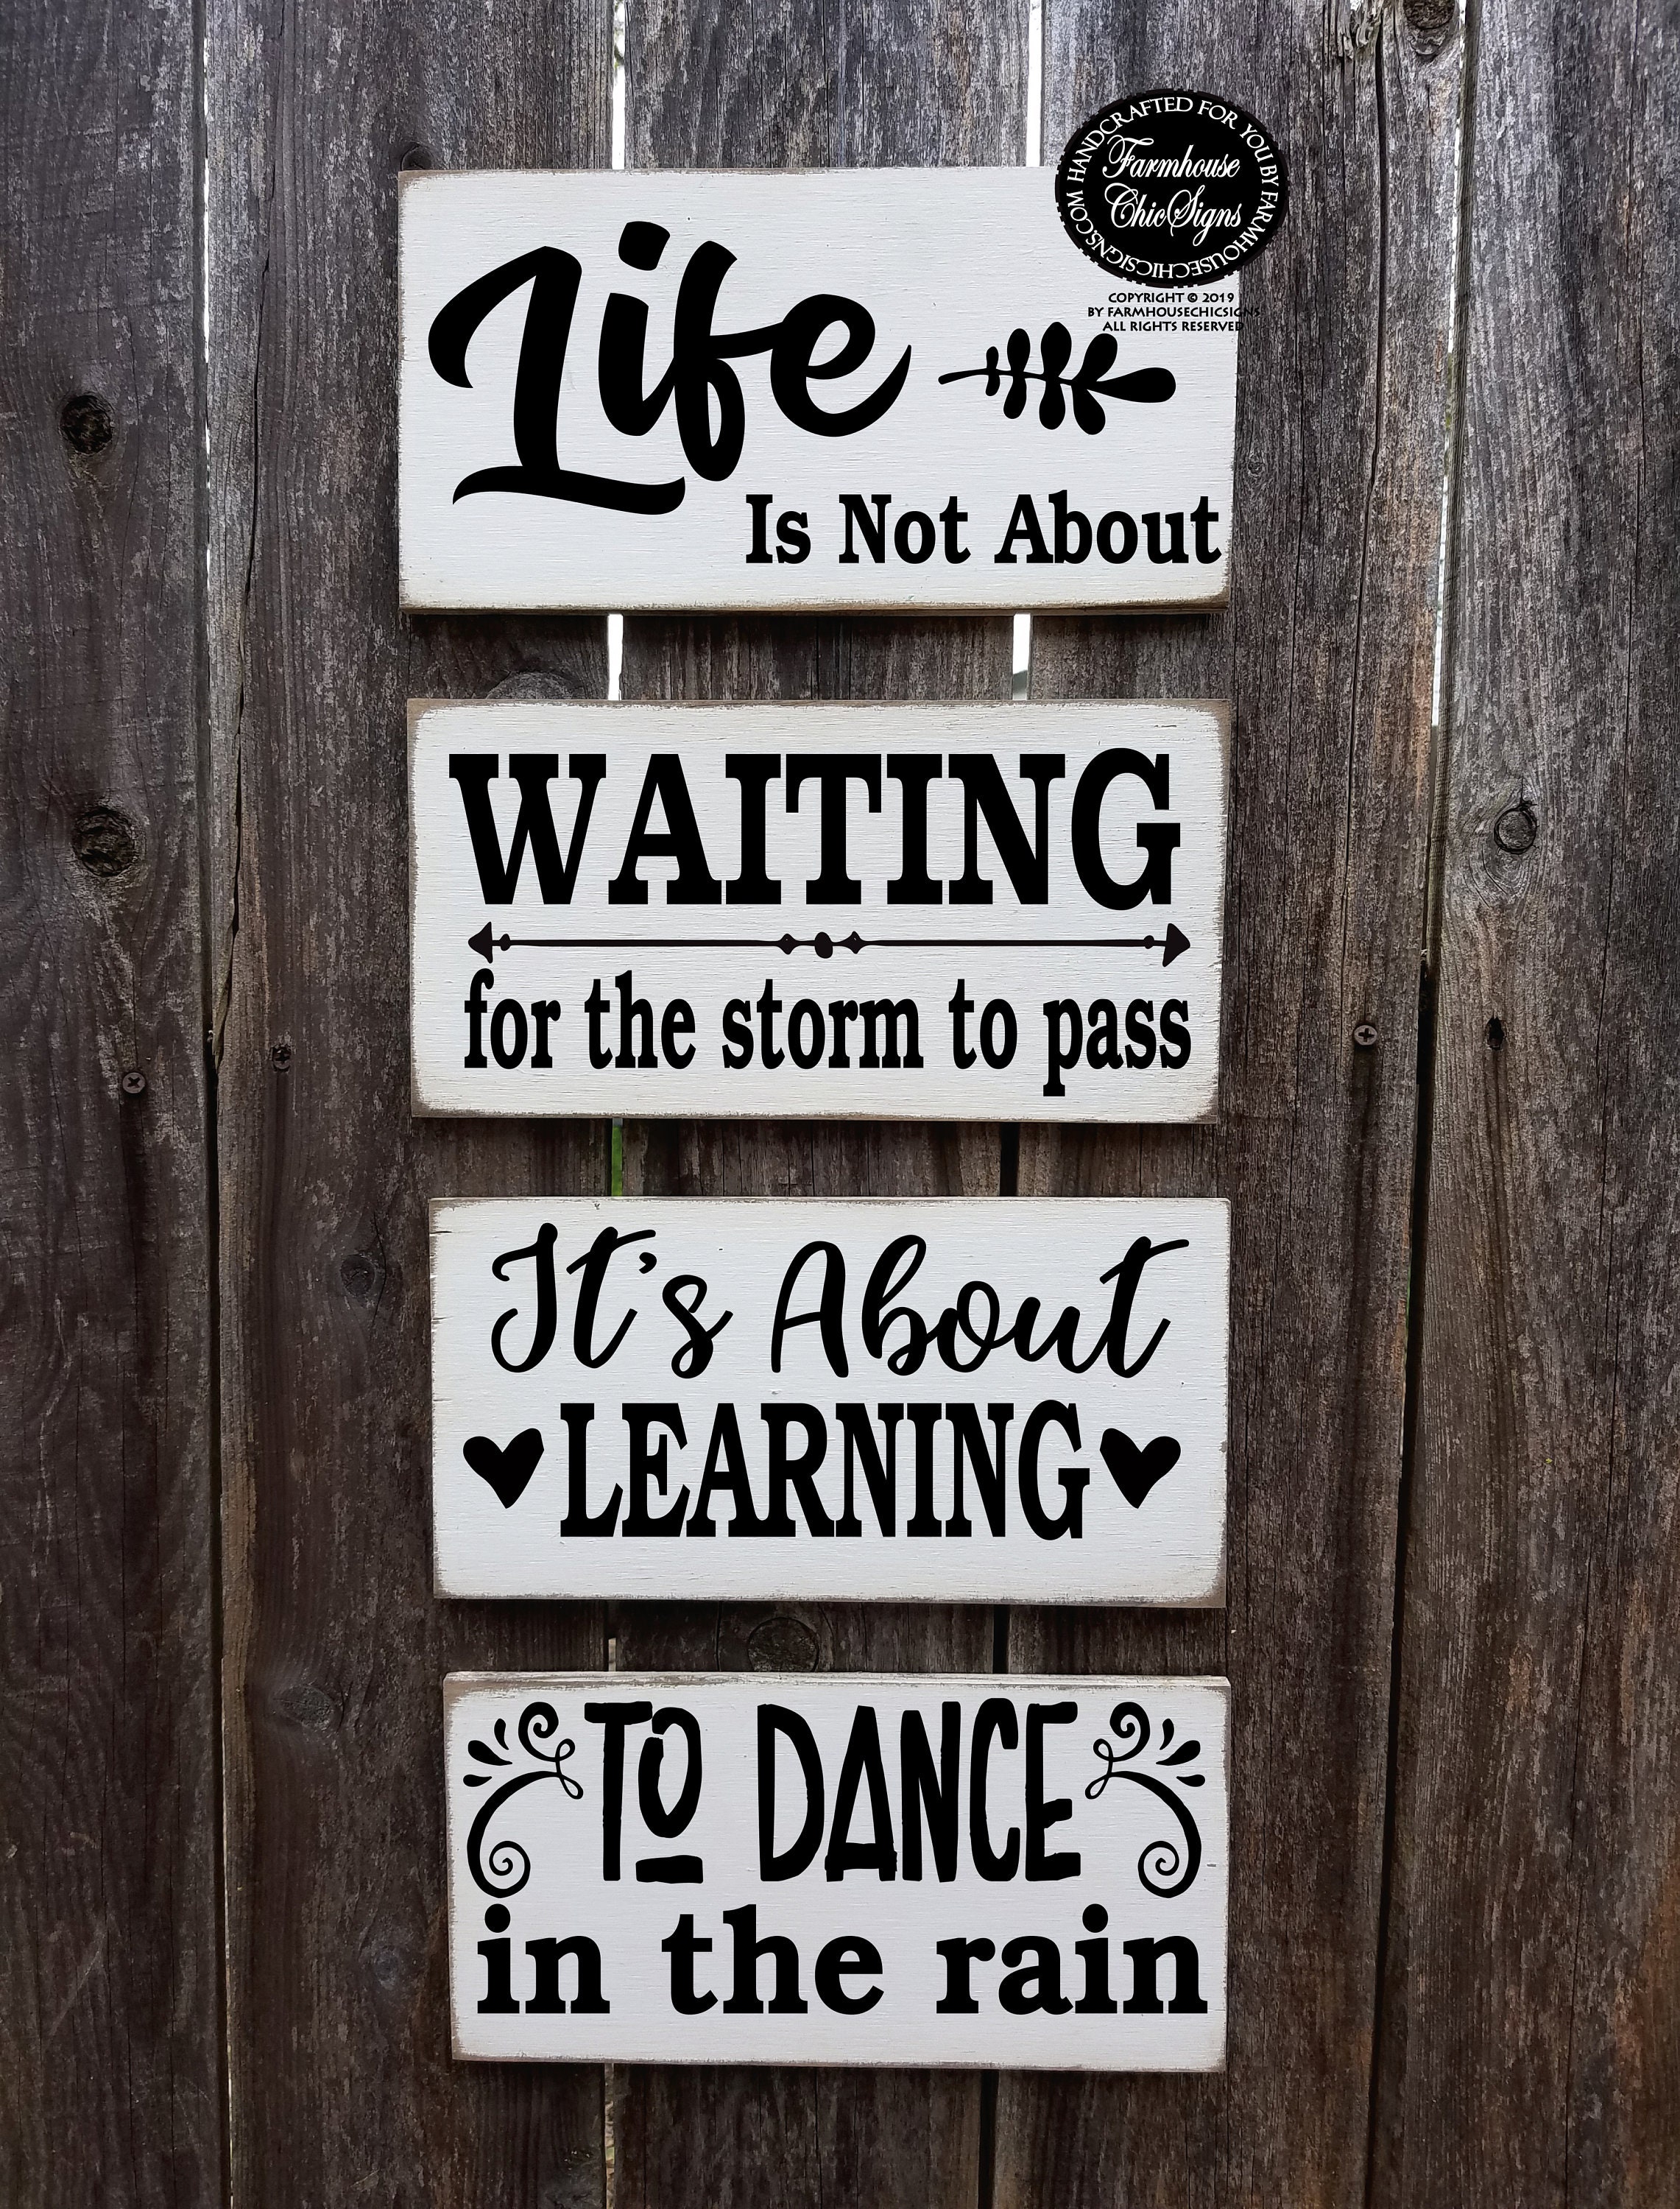 HANDCRAFTED FOR YOU BY FARMHOUSECHICSIGNS.COM
Farmhouse
ChicSigns
COPYRIGHT © 2019
BY FARMHOUSECHICSIGNS
ALL RIGHTS RESERVED
Life
Is Not About
WAITING
for the storm to pass
It's About
LEARNING
TO DANCE
in the rain